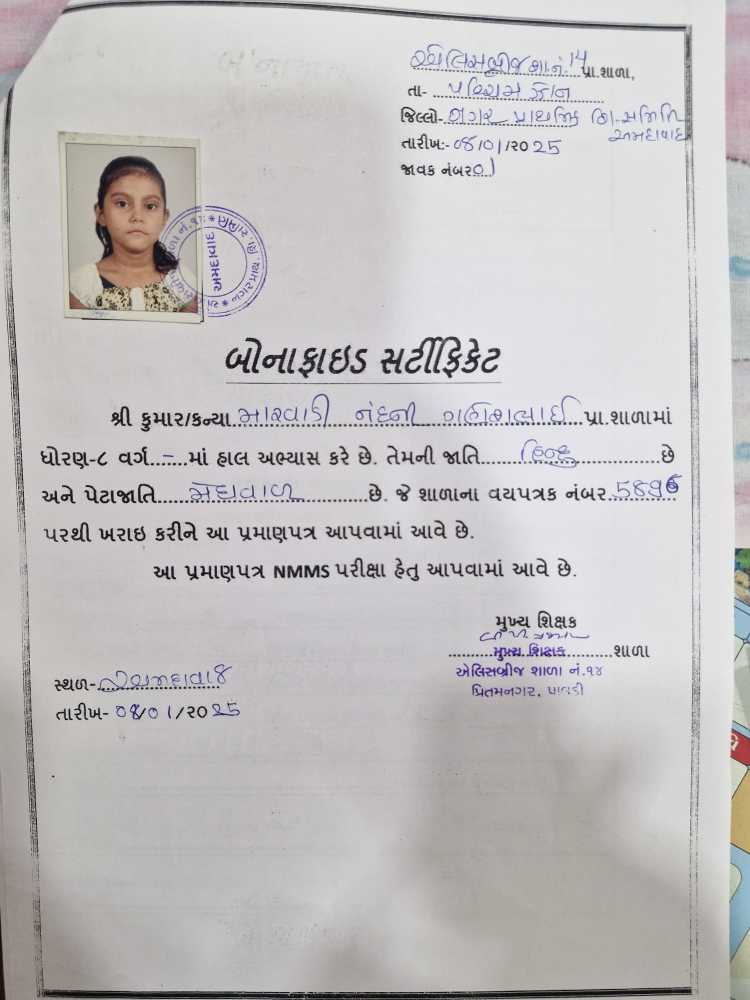 એલિસબ્રીજ શા.નં. 14 પ્રા.શાળા,
તા- પશ્ચિમ ઝોન
જિલ્લો- નગર પ્રાથમિક શિ.સમિતિ
અમદાવાદ
તારીખ:- 08/01/૨૦25
જાવક નંબર૦1
અમદાવાદ
બોનાફાઇડ સર્ટીફિકેટ
શ્રી કુમાર/કન્યા મારવાડી નંદની ગણેશભાઈ પ્રા.શાળામાં
ધોરણ-૮ વર્ગ......માં હાલ અભ્યાસ કરે છે. તેમની જાતિ હિન્દુ છે
અને પેટાજાતિ મેઘવાળ છે. જે શાળાના વયપત્રક નંબર
પરથી ખરાઇ કરીને આ પ્રમાણપત્ર આપવામાં આવે છે.
આ પ્રમાણપત્ર NMMS પરીક્ષા હેતુ આપવામાં આવે છે.
મુખ્ય શિક્ષક
મુખ્ય શિક્ષક શાળા
એલિસબ્રીજ શાળા નં.૧૪
પ્રિતમનગર, પાલડી
સ્થળ- અમદાવાદ
તારીખ- 08/01/૨૦25